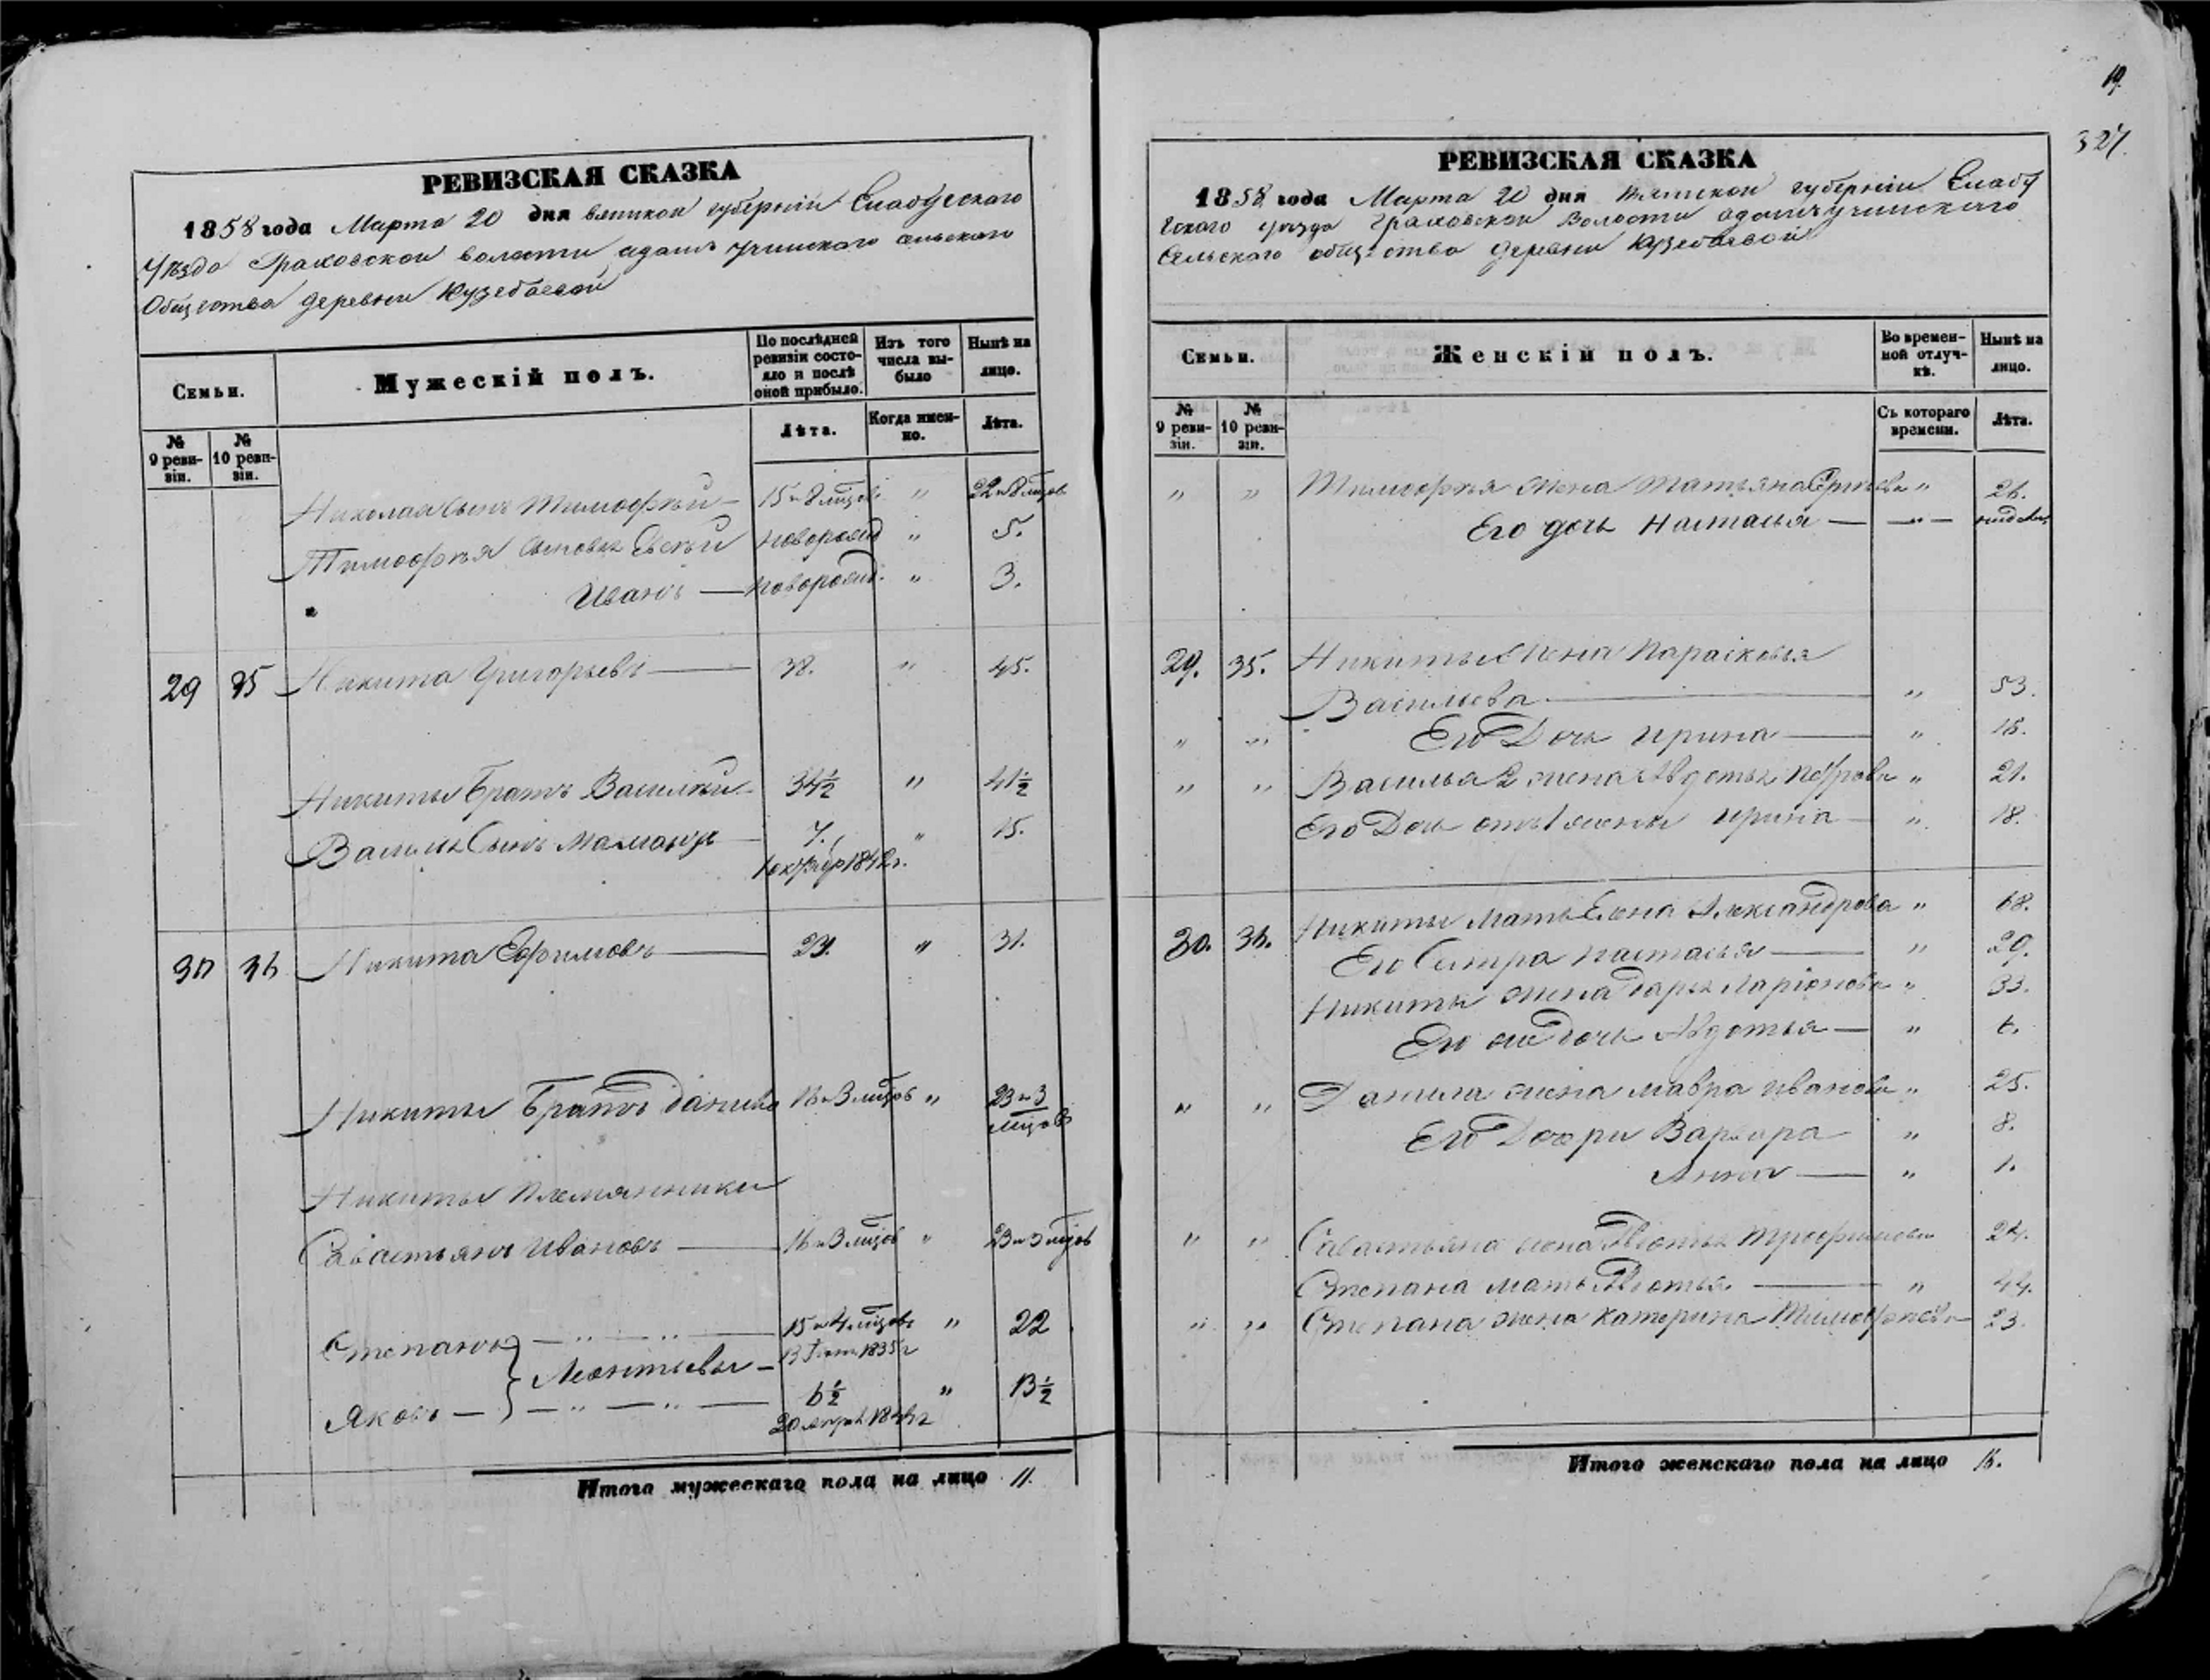 РЕВИЗСКАЯ СКАЗКА
1858 года Марта 20 дня вятской губерніи Елабугскаго
уѣзда Граховской волости адамъ учинскаго сельскаго
Общества деревни Кузебаевой
Семьи.
Мужескій полъ.
По послѣдней ревизіи состояло и послѣ оной прибыло.
Изъ того числа выбыло
Нынѣ на лицо.
№ 9 ревизіи.
№ 10 ревизіи.
Лѣта.
Когда именно.
Лѣта.
Николая сынъ Тимофѣй 15 и 8 мѣцовъ " 22 и 8 мѣцовъ
Тимофѣя сыновья новорожд " 5.
Иванъ — новорожд. " 3.
29 35 Никита Григорьевъ — 38. " 45.
Никиты Братъ Василій 34½ " 41½
Василья Сынъ 7. " 15.
Никита Ефимовъ — " 31.
30 36
Никиты Братъ данило 16 и 3 мѣцовъ " 23 и 3
мѣцовъ
Никиты племянники
Савастьянъ Ивановъ — 16 и 3 мѣцов " 23 и 3 мѣцов
Степанъ — " — " — 15 и 4 мѣцовъ " 22
Леонтьевы —
Яковъ — — " — " — 6½ " 13½
Итого мужескаго пола на лицо 11.
19.
327.
РЕВИЗСКАЯ СКАЗКА
1858 года Марта 20 дня Вятской губерніи Елабу
гскаго уѣзда Граховской Волости адамъ учинскаго
Сельскаго общества деревни Кузебаевой
Семьи.
Женскій полъ.
Во временной отлучкѣ.
Нынѣ на лицо.
№ 9 ревизіи.
№ 10 ревизіи.
Съ котораго времени.
Лѣта.
" " Тимофѣя жена Татьяна " 26.
Его дочь Настасья — — " —
29. 35. Никиты Жена Парасковья
Васильева — " 53.
" " Его Дочь Ирина — " 16.
" " Василья 2 жена Авдотья Петрова " 21.
Его Дочь отъ 1 жены Ирина — " 18.
Никиты мать Елена Александрова " 68.
30. 36. Его Сестра Настасья — " 29.
Никиты жена Дарья Ларіонова " 33.
Его же дочь Авдотья — " 6.
" " Данила жена мавра иванова " 25.
Его Дочери Варвара " 8.
Анна — " 1.
" " Савастьяна жена Авдотья Трофимова 24.
Степана мать Авдотья — " 44.
" " Степана жена Катерина Тимофѣева 23.
Итого женскаго пола на лицо 16.